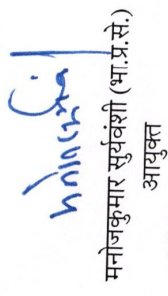 मनोजकुमार सुर्यवंशी (भा.प्र.से.)
आयुक्त